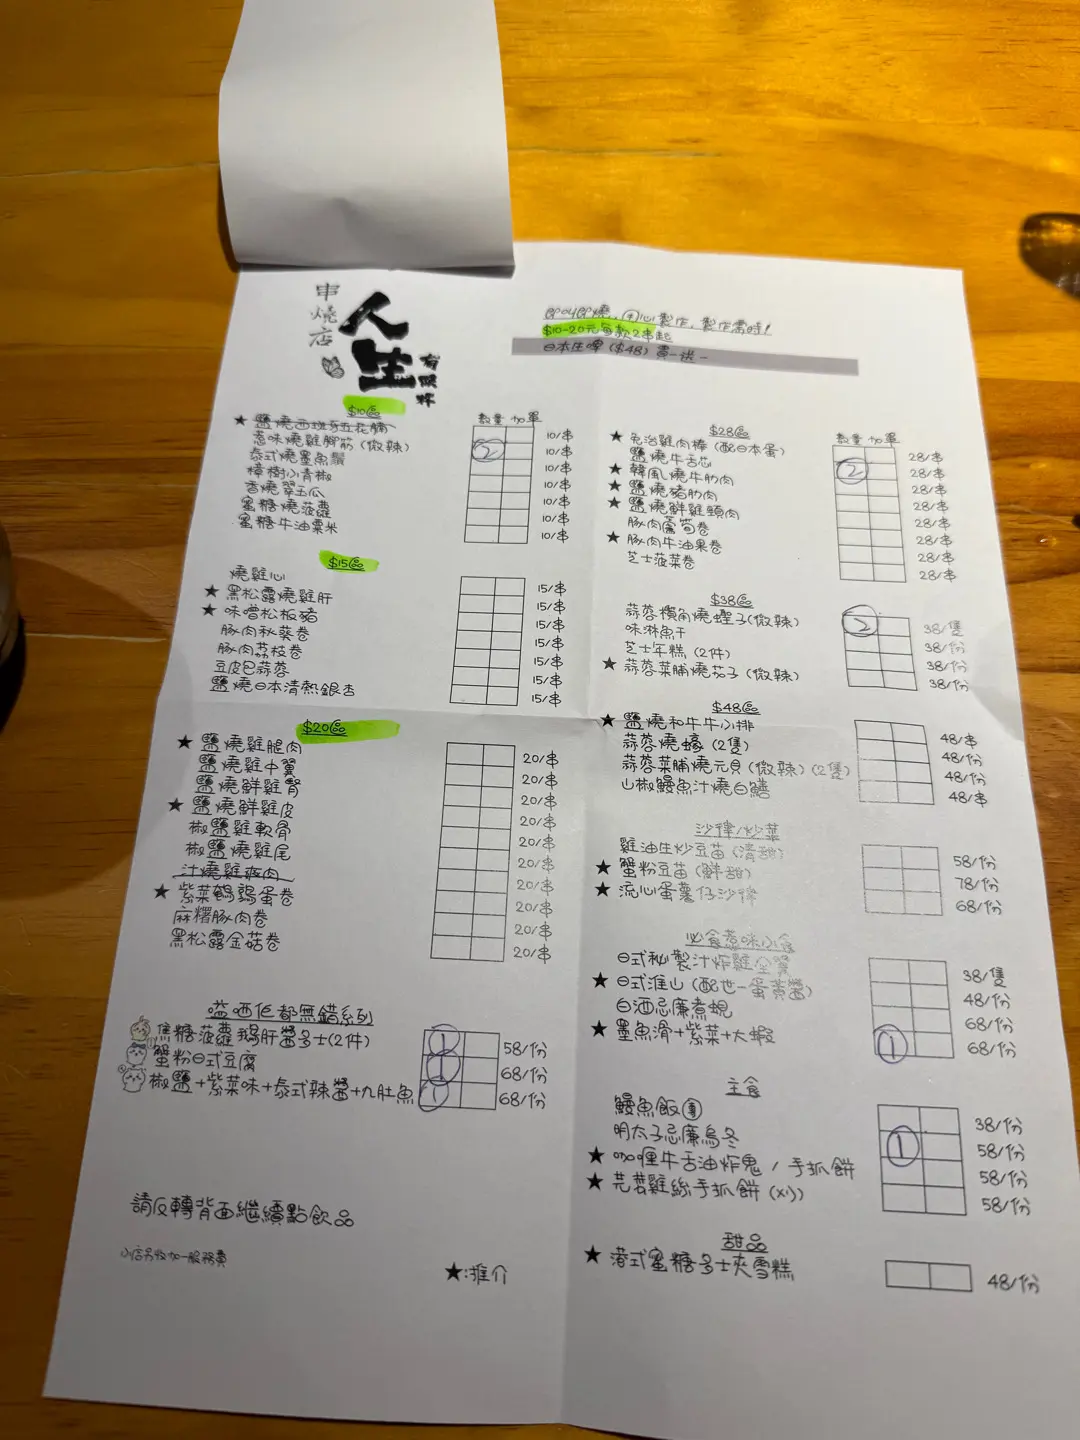 串燒店
人生
有限杯
即叫即燒, 手心製作, 製作需時!
$10-20元每款2串起
日本生啤 ($48) 買一送一
$10區
數量 加單
★ 鹽燒西班牙五花腩 10/串
惹味燒雞腳筋 (微辣) ② 10/串
泰式燒墨魚鬚 10/串
樟樹小青椒 10/串
香燒翠玉瓜 10/串
蜜糖燒菠蘿 10/串
蜜糖牛油粟米 10/串
$15區
燒雞心 15/串
★ 黑松露燒雞肝 15/串
★ 味噌松板豬 15/串
豚肉秋葵卷 15/串
豚肉荔枝卷 15/串
豆皮包蒜蓉 15/串
鹽燒日本清熱銀杏 15/串
$20區
★ 鹽燒雞腿肉 20/串
鹽燒雞中翼 20/串
鹽燒鮮雞腎 20/串
★ 鹽燒鮮雞皮 20/串
椒鹽雞軟骨 20/串
椒鹽燒雞尾 20/串
汁燒雞疲肉 20/串
★ 紫菜鵪鶉蛋卷 20/串
麻糬豚肉卷 20/串
黑松露金菇卷 20/串
嗌咩佢都無錯系列
焦糖菠蘿鵝肝醬多士(2件) ① 58/份
蟹粉日式豆腐 ① 68/份
椒鹽+紫菜味+泰式辣醬+九肚魚 ① 68/份
請反轉背面繼續點飲品
小店另收加一服務費
★:推介
$28區
數量 加單
★ 免治雞肉棒 (配日本蛋) 28/串
鹽燒牛舌芯 ② 28/串
★ 韓風燒牛肋肉 28/串
★ 鹽燒豬肋肉 28/串
★ 鹽燒鮮雞頸肉 28/串
豚肉蘆筍卷 28/串
★ 豚肉牛油果卷 28/串
芝士菠菜卷 28/串
$38區
蒜蓉欖角燒蟶子(微辣) ② 38/隻
味淋魚干 38/份
芝士年糕 (2件) 38/份
★ 蒜蓉菜脯燒茄子 (微辣) 38/份
$48區
★ 鹽燒和牛牛小排 48/串
蒜蓉燒蠔 (2隻) 48/份
蒜蓉菜脯燒元貝 (微辣) (2隻) 48/份
山椒鰻魚汁燒白鱔 48/串
沙律/炒菜
雞油生炒豆苗 (清甜) 58/份
★ 蟹粉豆苗 (鮮甜) 78/份
★ 流心蛋薯仔沙律 68/份
必食惹味小食
日式秘製汁炸雞全翼 38/隻
★ 日式淮山 (配世一蛋黃醬) 48/份
白酒忌廉煮蜆 68/份
★ 墨魚滑+紫菜+大蝦 ① 68/份
主食
鰻魚飯 38/份
明太子忌廉烏冬 ① 58/份
★ 咖喱牛舌油炸鬼 / 手抓餅 58/份
★ 芫荽雞絲手抓餅 (凍) 58/份
甜品
★ 港式蜜糖多士夾雪糕 48/份